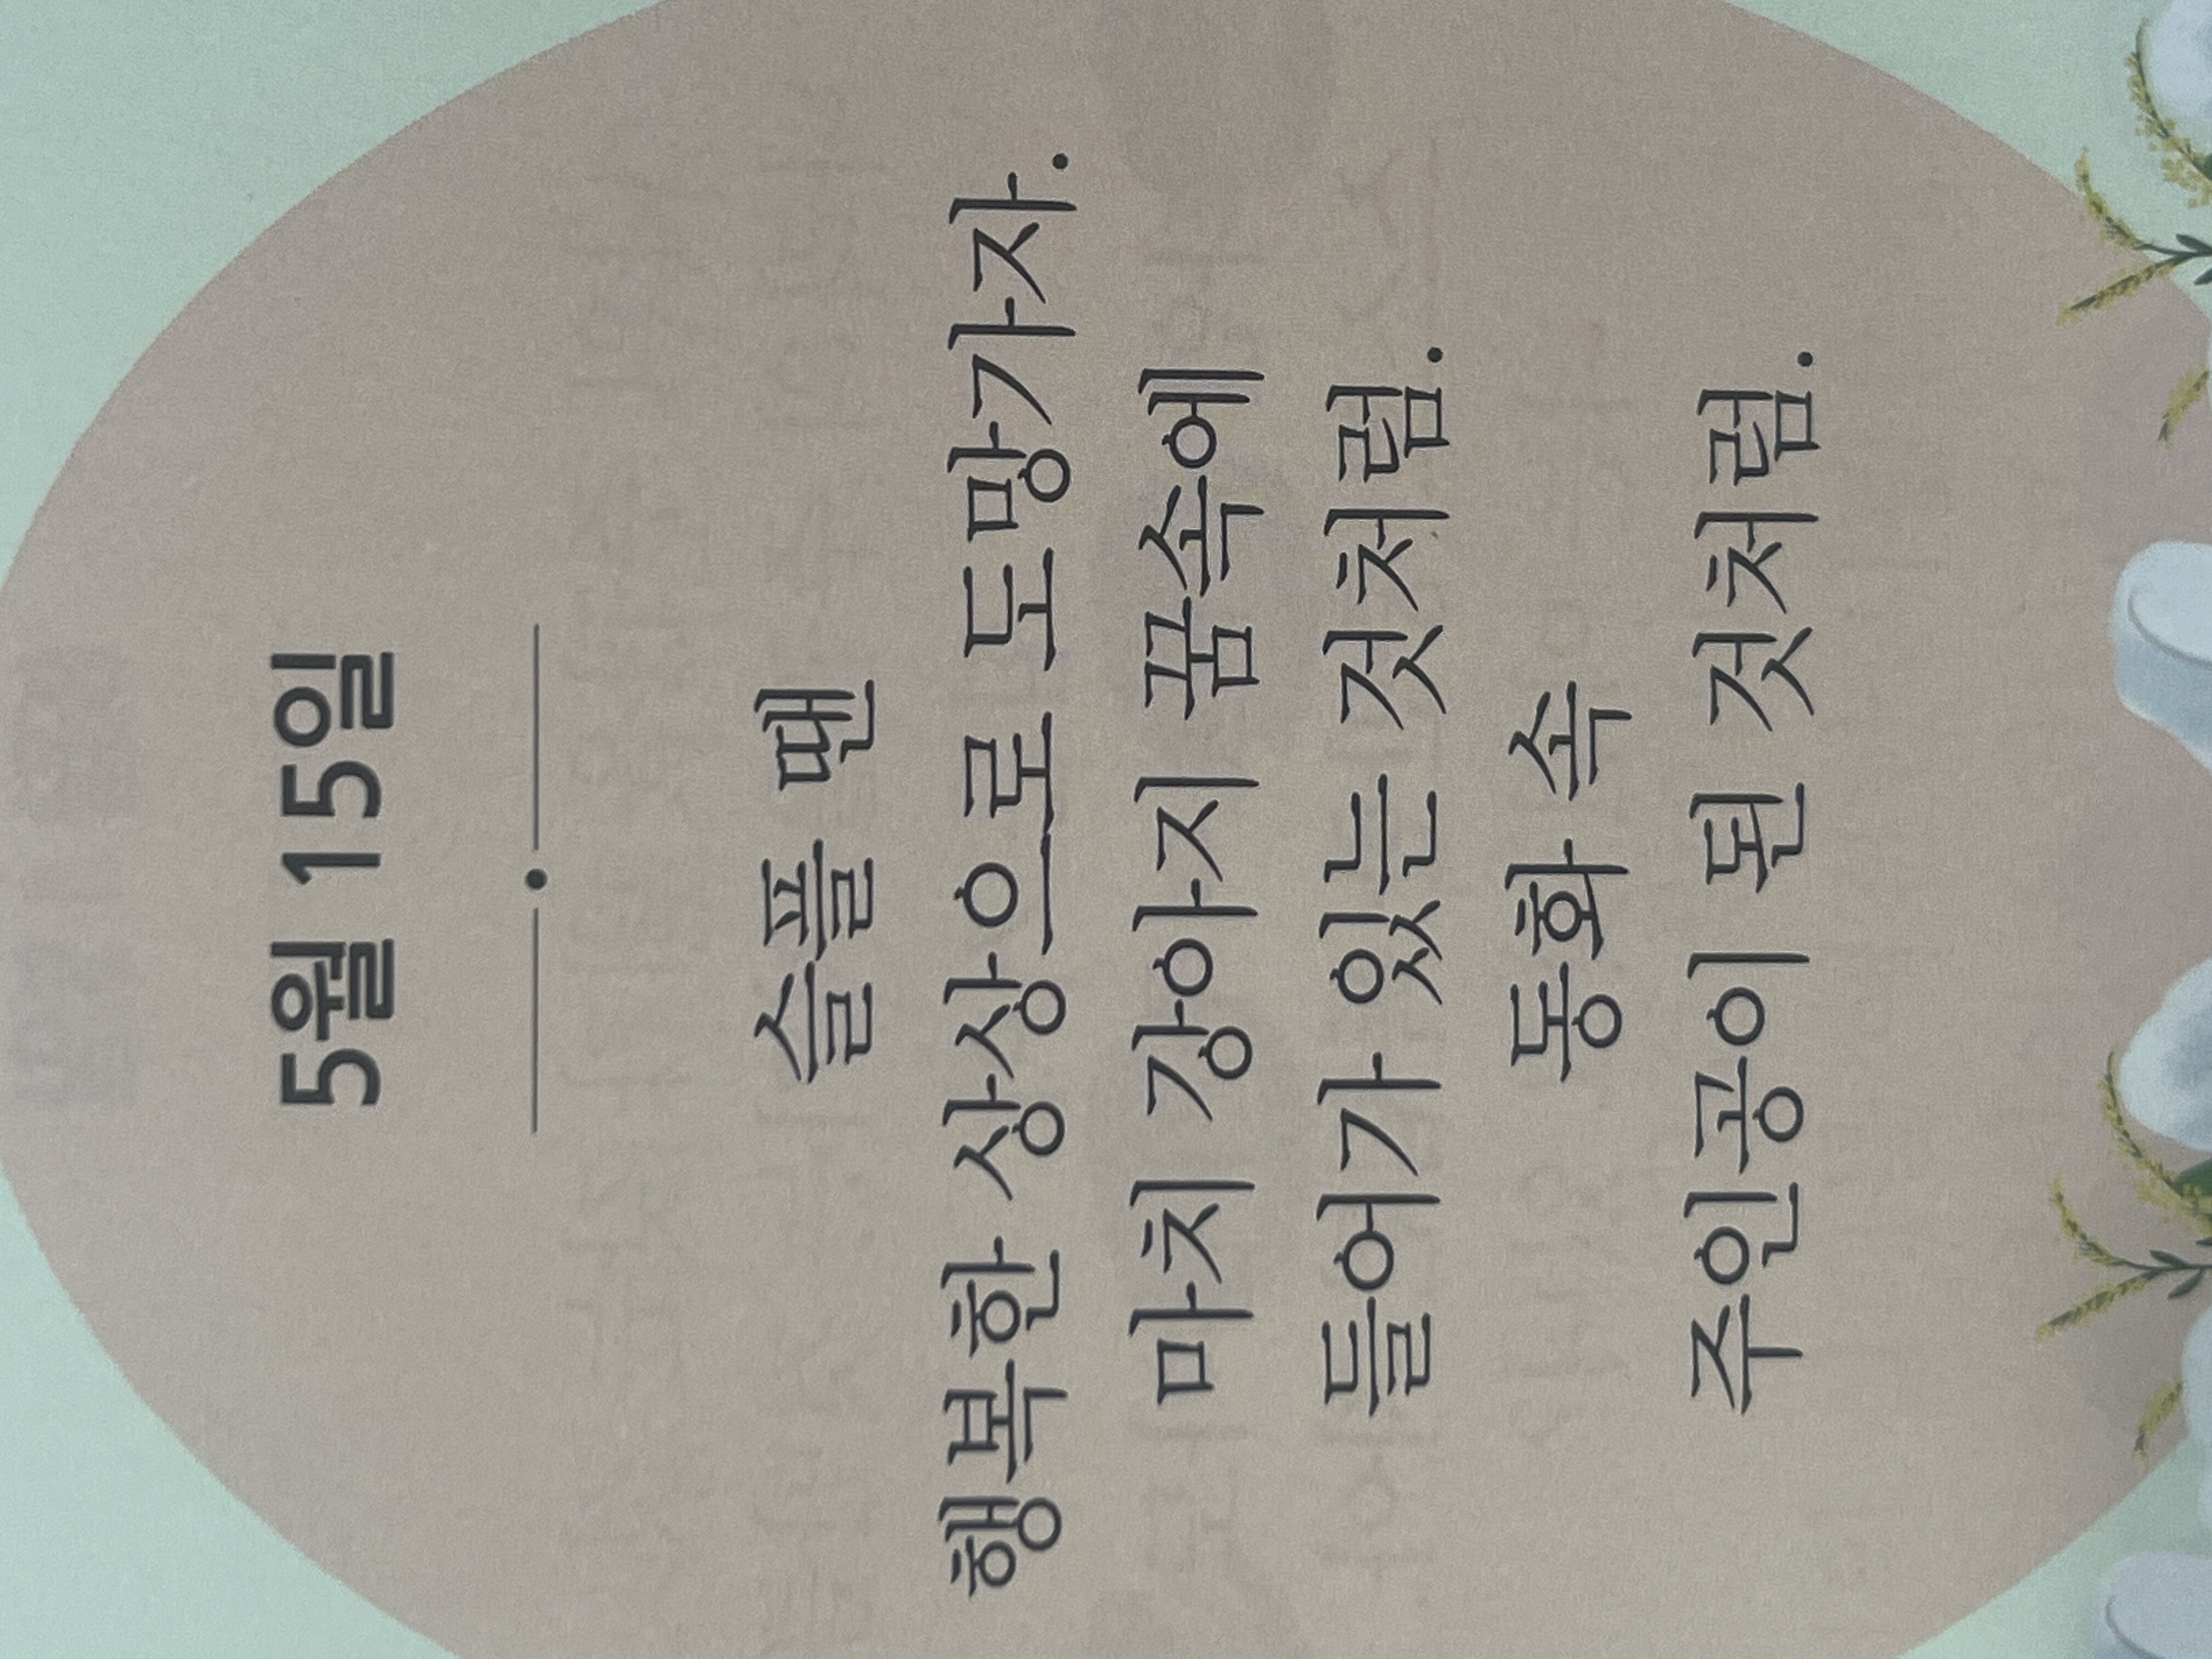 5월 15일
슬플 땐
행복한 상상으로 도망가자.
마치 강아지 꿈속에
들어가 있는 것처럼.
동화 속
주인공이 된 것처럼.